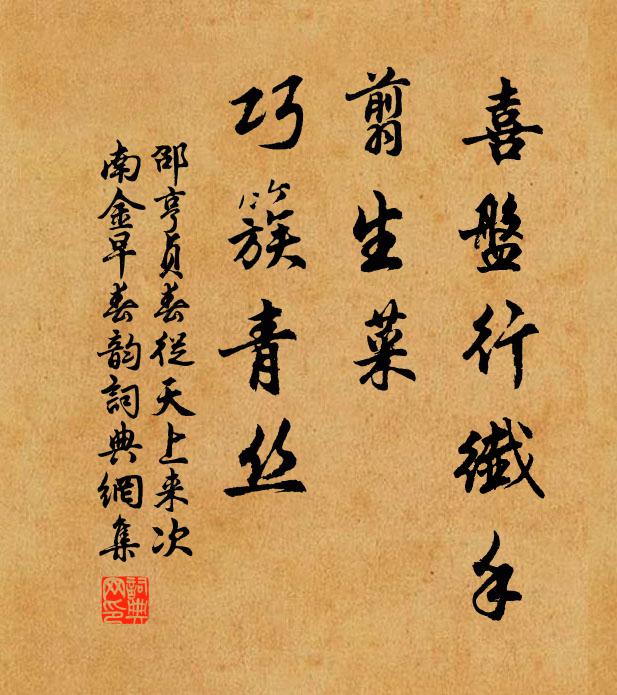 喜盤行纖手
翦生菜
巧簇青丝
邵亨貞春從天上来次
南金早春韵詞典網集
詞典网印